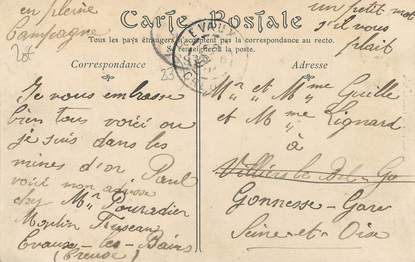 en pleine
Campagne
un petit mot
s'il vous
plait
Carte Postale
Tous les pays étrangers n'acceptent pas la correspondance au recto.
Se renseigner à la poste.
EVAUX
Correspondance
Adresse
20f
23
Je vous embrasse
bien tous voici ou
je suis dans les
mines d'or Paul
voici mon adresse
chez Mr Pouradier
Moulin
Evaux-les-Bains
(Creuse)
Mr et Mme Guille
et Mme Lignard
à
Villiers le Bel-Go
Gonnesse-Gare
Seine-et-Oise